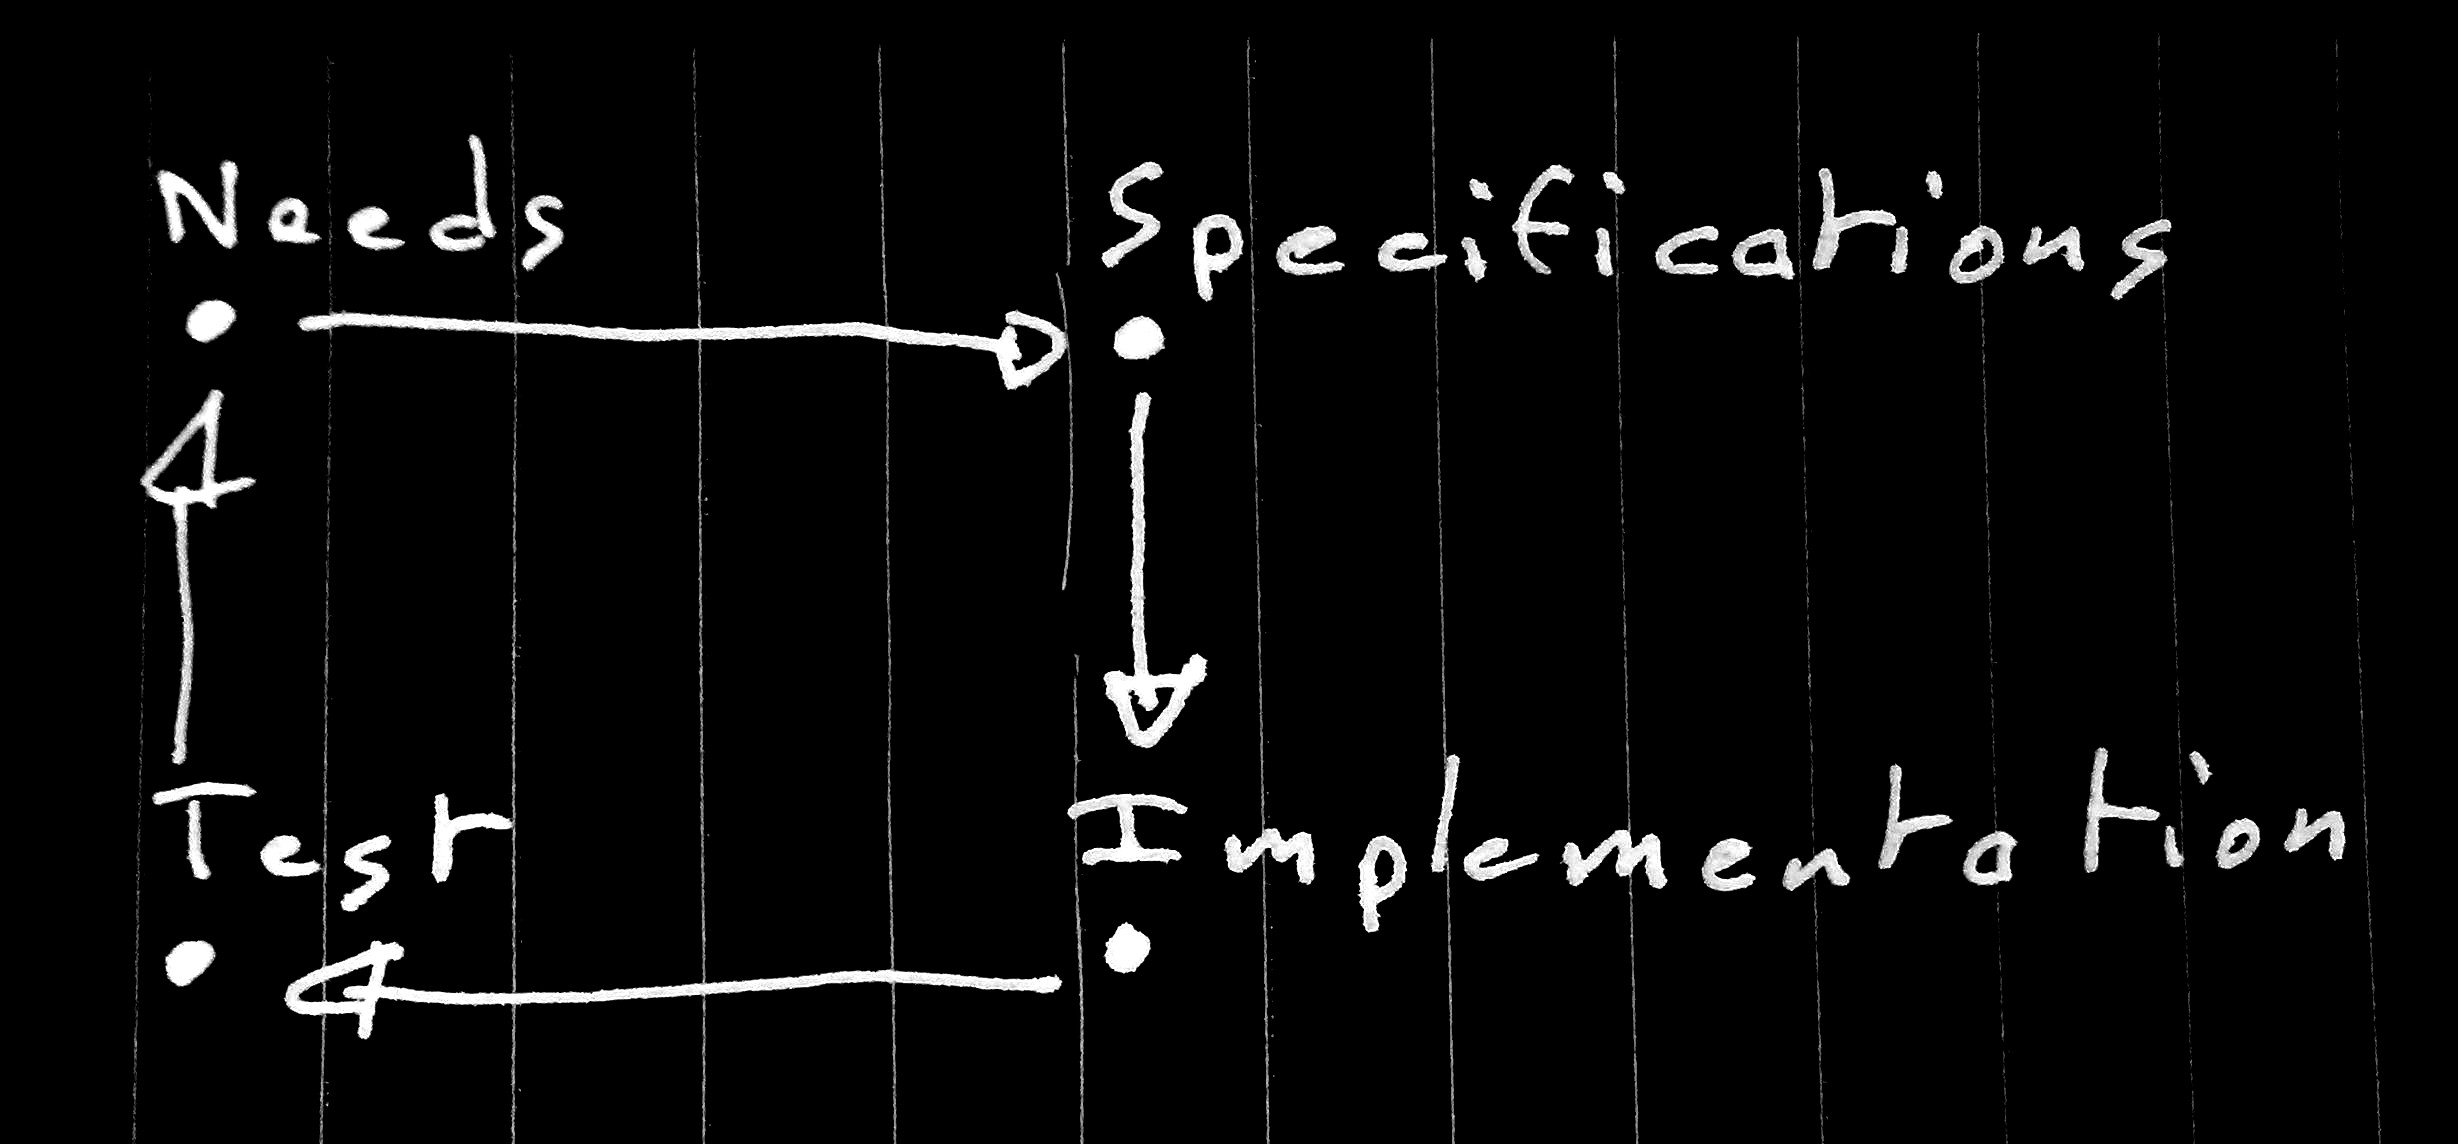 Needs
Specifications
Test
Implementation